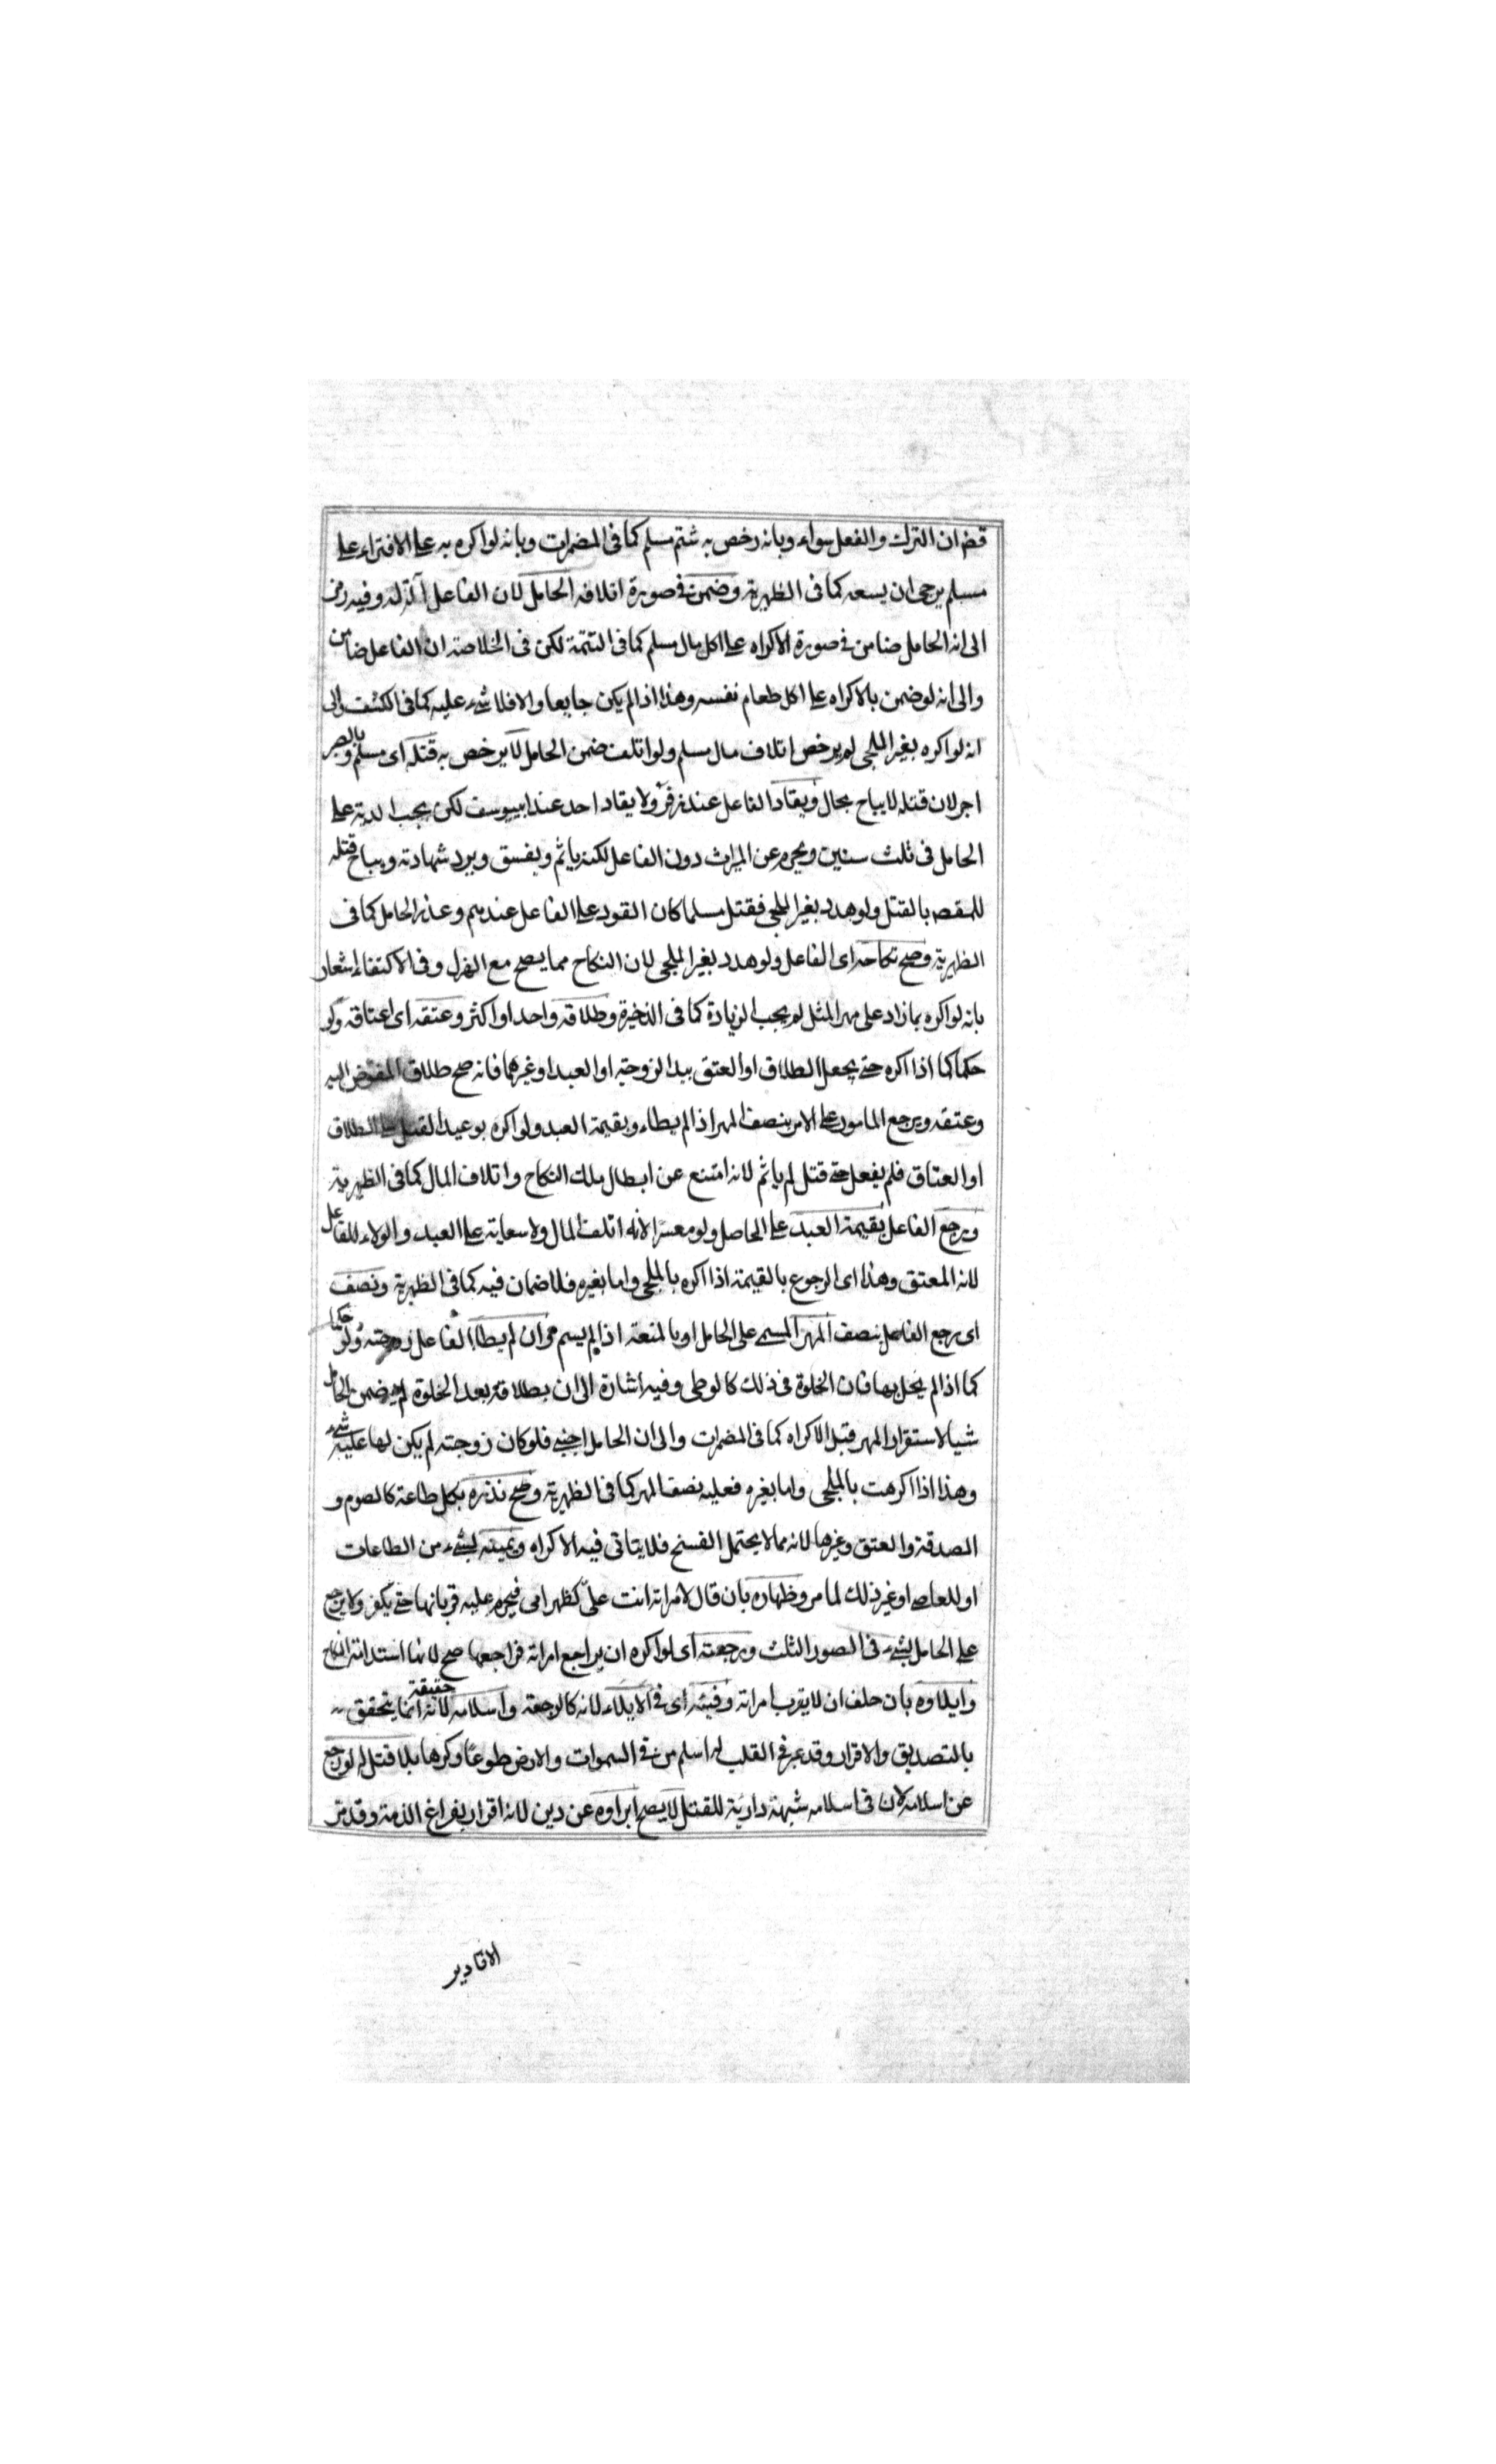 قضه ان الترك والفعل سواء وبانه رخص به شتم مسلم كما فى المضمرات وبانه لو اكره به على الافتراء على
مسلم يرجى ان يسعه كما فى الظهيرية وضمن فى صورة اتلافه الحامل لان الفاعل آلة له وفيه رمز
الى انه الحامل ضامن فى صورة الاكراه على اكل مال مسلم كما فى التتمة لكن فى الخلاصة ان الفاعل ضامن
والى انه لو ضمن بالاكراه على اكل طعام نفسه وهذا اذا لم يكن جايعا والا فلا شىء عليه كما فى الكشف والى
انه لو اكره بغير الملجى لم يرخص اتلاف مال مسلم ولو اتلف ضمن الحامل لا يرخص به قتله اى مسلم وبالصبر
اجر لان قتله لا يباح بحال ويقاد الفاعل عند زفر ولا يقاد احد عند ابييوسف لكن يجب الدية على
الحامل فى ثلث سنين ويحرم عن الميراث دون الفاعل لكنه ياثم ويفسق ويرد شهادته ويباح قتله
للمقصد بالقتل ولو هدد بغير الملجى فقتل مسلما كان القود على الفاعل عندهم وعذر الحامل كما فى
الظهيرية وصح نكاحه اى الفاعل ولو هدد بغير الملجى لان النكاح مما يصح مع الهزل وفى الاكتفاء اشعار
بانه لو اكره بما زاد على مهر المثل لم يجب الزيادة كما فى الذخيرة وطلاقه واحدا او اكثر وعتقه اى اعتاقه ولو
حكما كما اذا اكره حتى يجعل الطلاق او العتق بيد الزوجة او العبد او غيرهما فانه صح طلاق المفوض اليه
وعتقه ويرجع المامور على الامر بنصف المهر اذا لم يطاء وبقيمة العبد ولو اكره بوعيد القتل على الطلاق
او العتاق فلم يفعل حتى قتل لم ياثم لانه امتنع عن ابطال ملك النكاح واتلاف المال كما فى الظهيرية
ويرجع الفاعل بقيمة العبد على الحاصل ولو معسرا لانه اتلف المال ولا سعاية على العبد والولاء للفاعل
لانه المعتق وهذا اى الرجوع بالقيمة اذا اكره بالملجى واما بغيره فلا ضمان فيه كما فى الظهيرية ونصف
اى يرجع الفاعل بنصف المهر المسمى على الحامل او بالمتعة اذا لم يسم مهر ان لم يطا الفاعل زوجته ولو حكما
كما اذا لم يخل بها فان الخلوة فى ذلك كالوطى وفيه اشارة الى ان بطلاقه بعد الخلوة لم يضمن الحامل
شيا لاستقرار المهر قبل الاكراه كما فى المضمرات والى ان الحامل اجنبى فلو كان زوجته لم يكن لها عليه شىء
وهذا اذا اكرهت بالملجى واما بغيره فعليه نصف المهر كما فى الظهيرية وصح نذره بكل طاعة كالصوم و
الصدقة والعتق وغيرها لانه مما لا يحتمل الفسخ فلا يتاتى فيه الاكراه ويمينه بشىء من الطاعات
او المعاصى او غير ذلك لما مر وظهاره بان قال لامراته انت علىّ كظهر امى فيحرم عليه قربانها حتى يكفر ولا يرجع
على الحامل بشىء فى الصور الثلث ورجعته اى لو اكره ان يراجع امراته فراجعها صح لانها استدامة النكاح
وايلاوه بان حلف ان لا يقرب امراته وفيئه اى فى الايلاء لانه كالرجعة واسلامه لانه انما يتحقق حقيقة
بالتصديق والاقرار وقد عبر فى القلب له اسلم من فى السموات والارض طوعا وكرها بلا قتل له لو رجع
عن اسلامه لان فى اسلامه شبهة دارية للقتل لا يصح ابراوه عن دين لانه اقرار بفراغ الذمة وقد مر
الاقادير